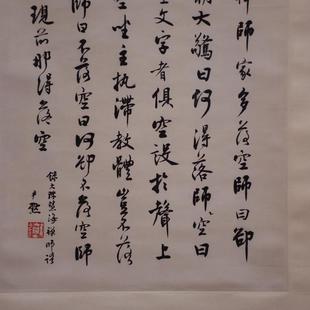 禪師家多落空師曰却
明大驚曰何得落師空曰
文字者俱空設於聲上
空坐主執滯教體豈不落
師曰不落空曰何却不落空師
現前那得落空
錄大珠慧海禪師語
尹默